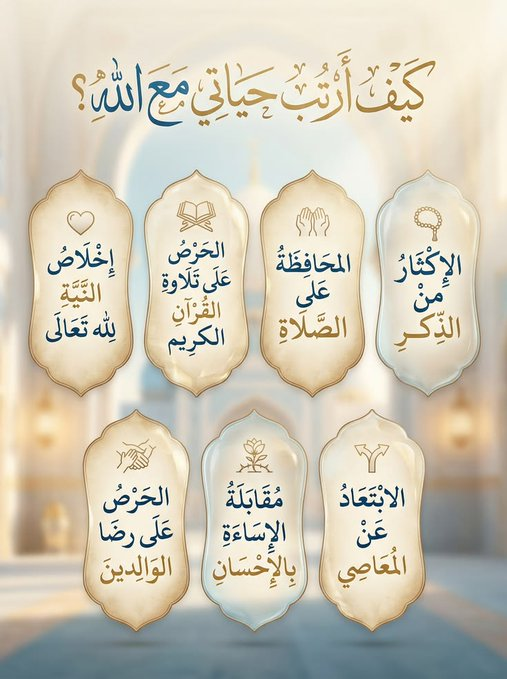 كَيْفَ أُرَتِّبُ حَيَاتِي مَعَ اللهِ؟
الإِكْثَارُ
مِنْ
الذِّكْرِ
المحَافِظَةُ
عَلَى
الصَّلَاةِ
الحَرْصُ
عَلَى تَلَاوةِ
القُرْآنِ
الكَرِيم
إِخْلَاصُ
النَّيَّةِ
لِلّه تَعَالَى
الابْتَعَادُ
عَنْ
المُعَاصِي
مُقَابَلَةُ
الإِسَاءَةِ
بِالإِحْسَانِ
الحَرْصُ
عَلَى رِضَا
الوَالِدينَ